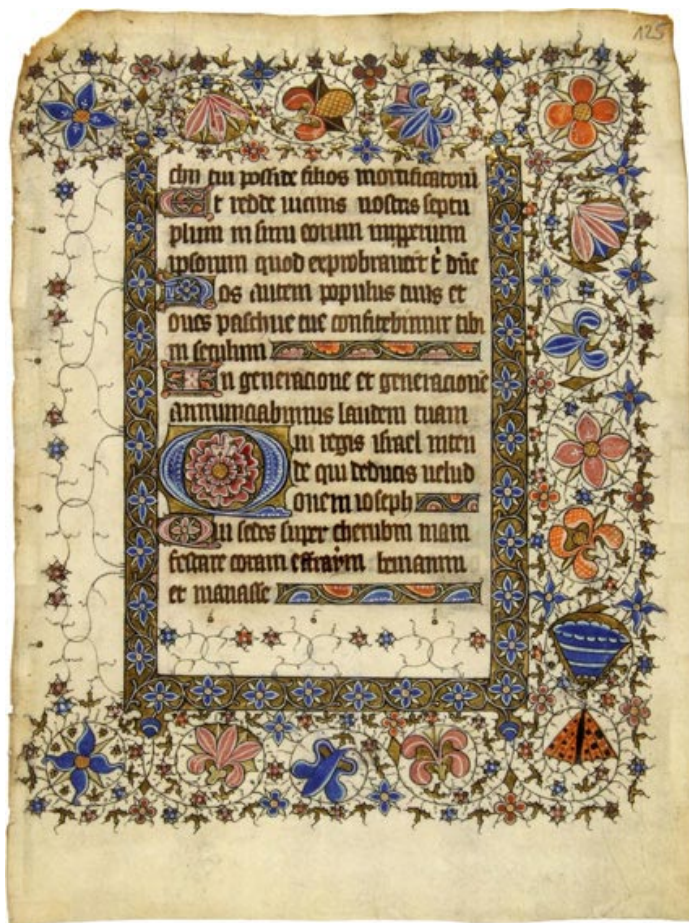 125
chii tui posside filios mortificatorū
Et redde uicinis nostris septu
plum in sinu eorum improperium
ipsorum quod exprobrauert̄ t̄ dn̄e
Nos autem populus tuus et
oues pascue tue confitebimur tibi
in seculum
In generacione et generacione
annunciabimus laudem tuam
Qui regis israel inten
de qui deducis uelud
ouem ioseph
Qui sedes super cherubin mani
festare coram effraym beniamin
et manasse